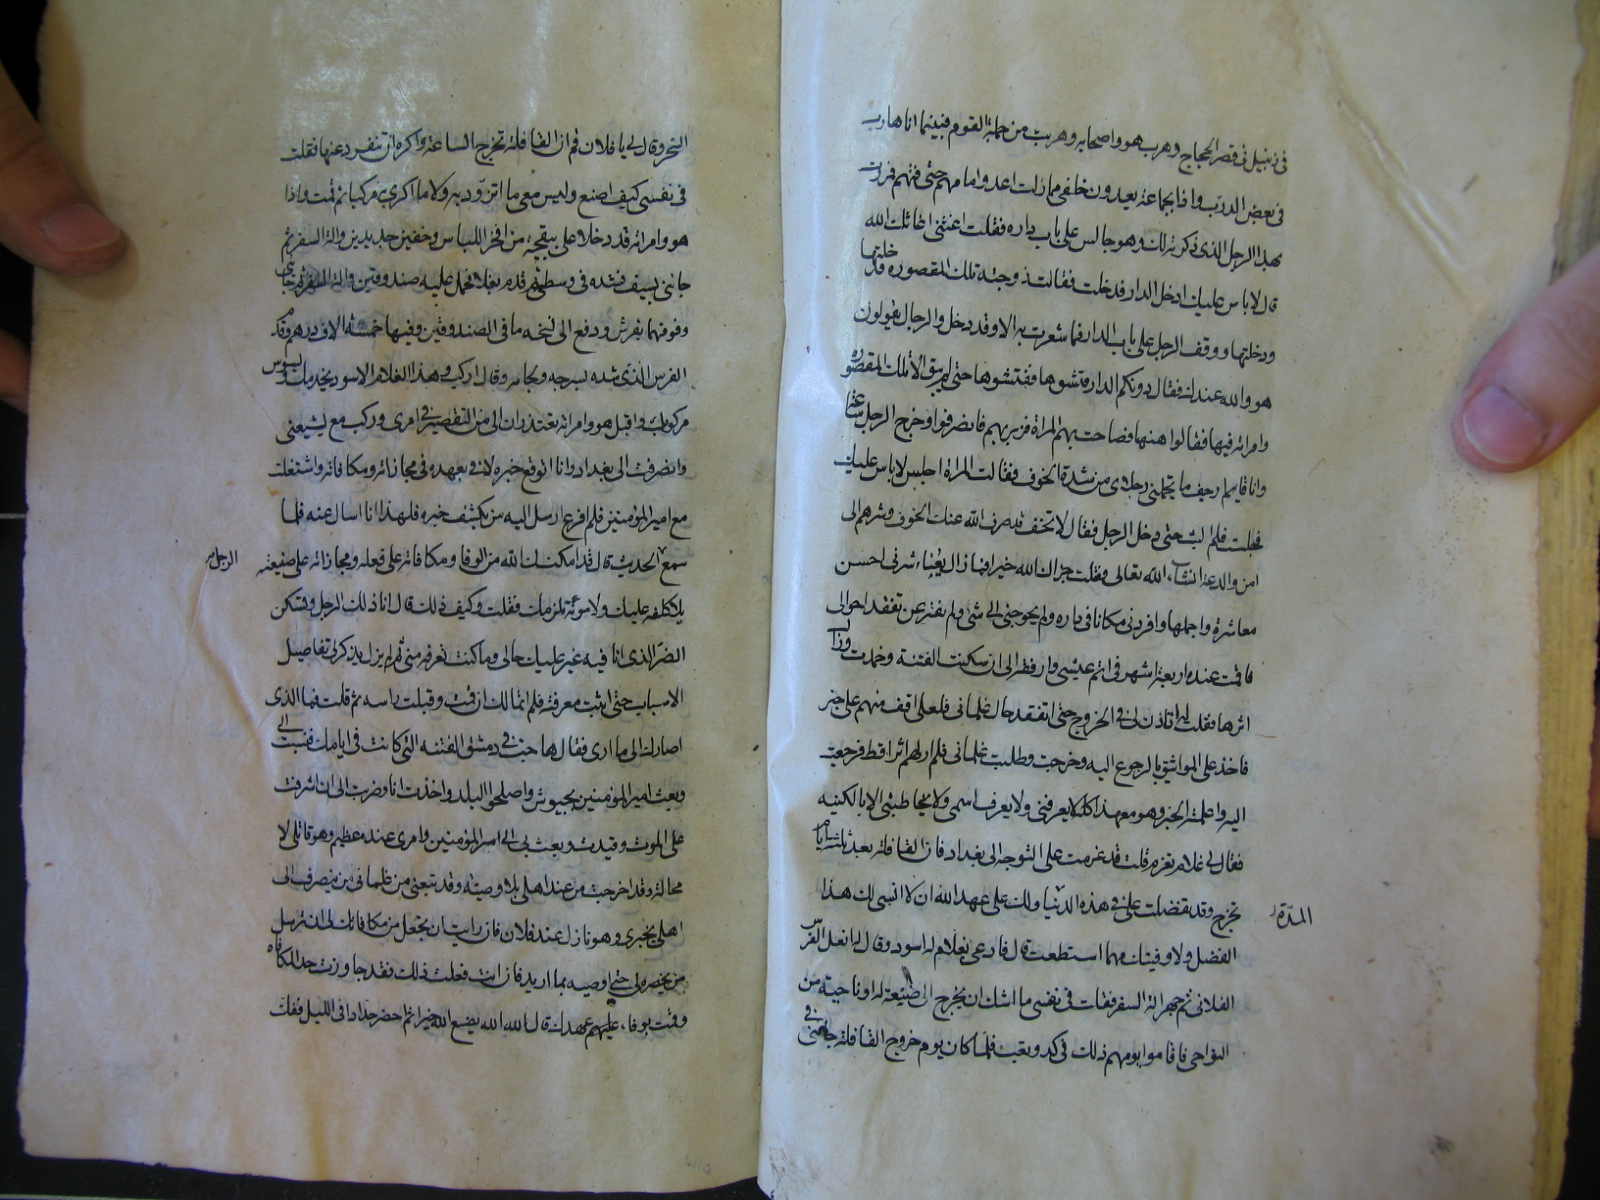 في زنبيل في قصر الحجاج وهرب هو واصحابه وهربت من جملة القوم فبينما انا هارب
في بعض الدرب واذا بجماعة يعدون خلفي فما زلت اعدو امامهم حتى فتهم فمررت
بهذا الرجل الذي ذكرته لك وهو جالس على باب داره فقلت اغثني اغاثك الله
قال لا باس عليك ادخل الدار فدخلت فقالت زوجته تلك المقصوره فدخلتها
ودخلتها ووقف الرجل على باب الدار فما شعرت به الا وقد دخل والرجال يقولون
هو والله عندك فقال دونكم الدار فتشوها ففتشوها حتى لم يبق الا تلك المقصوره
وامراته فيها فقالوا هنها فصاحت بهم المراة فزبرتهم فانصرفوا وخرج الرجل ساعة
وانا قايم ارجف ما تحملني رجلاي من شدة الخوف فقالت المراة اجلس لا باس عليك
فجلست فلم البث حتى دخل الرجل فقال لا تخف قد صرف الله عنك الخوف وشرهم الى
امن والدعة انشاء الله تعالى فقلت جزاك الله خيرا فما زال يعاشرني احسن
معاشرة واجملها وافردني مكانا في داره ولم يحوجني الى شي ولم يفتر عن تفقد احوالى
فاقمت عنده اربعة اشهر في اتم عيش وارفه الى ان سكنت الفتنة وخمدت وزال
اثرها فقلت له اتاذن لي في الخروج حتى اتفقد حال غلماني فلعلى اقف منهم على خبر
فاخذ على المواثيق بالرجوع اليه وخرجت وطلبت غلماني فلم ار لهم اثرا قط فرجعت
اليه واعلمته الخبر وهو مع هذا كله لا يعرفني ولا يعرف اسمى ولا يخاطبني الا بالكنيه
فقال لي علام تعزم قلت قد عزمت على التوجه الى بغداد فان القافلة بعد ثلثة ايام
تخرج وقد تفضلت على في هذه الدنيا ولك على عهد الله ان لا انسى لك هذا
المدة
الفضل ولاوفينك مهما استطعت قال فدعى بغلام له اسود وقال له انعل الفرس
الفلاني ثم جهز الة السفر فقلت في نفسى ما اشك ان يخرج الى ضيعة له او ناحية من
النواحى فاقاموا يومهم ذلك في كد وتعب فلما كان يوم خروج القافلة جاءني في
السحر وقال لي يا فلان قم فان القافلة تخرج الساعة واكره ان تنفرد عنها فقلت
في نفسى كيف اصنع وليس معى ما اتزود به ولا ما اكرى به مركبا ثم قمت واذا
هو وامراته قد دخلا على ببقجة من افخر اللباس وخفين جديدين والة السفر ثم
جاءني بسيف فشده في وسطى ثم قدم بغلا فحمل عليه صندوقين والة السفر
وفوقهما بفرش ودفع الى نسخه ما في الصندوقين وفيها خمسة الاف درهم وقدم
الفرس الذى شده بسرجه ولجامه وقال اركب وهذا الغلام الاسود يخدمك ويسوس
مركوبك واقبل هو وامراته يعتذران الى من التقصير في امرى وركب مع يشيعني
وانصرفت الى بغداد وانا اتوقع خبره لافي بعهده في مجازاته ومكافاته واشتغلت
مع امير المؤمنين فلم افرغ ارسل اليه من يكشف خبره فلهذا انا اسال عنه فلما
سمع الحديث قال قد امكنك الله من الوفا ومكافاته على فعله ومجازاته على صنيعته
الرجل
بلا كلفه عليك ولا موئة تلزمك فقلت وكيف ذلك قال انا ذلك الرجل
الضر الذى انا فيه غير عليك حالى وما كنت تعرفه مني ثم لم يزل يذكر لى تفاصيل
الاسباب حتى اثبت معرفته فلم اتمالك ان قمت وقبلت راسه ثم قلت فما الذى
اصارك الى ما ارى فقال هاجت في دمشق الفتنه التي كانت في ايامك فنسبت الي
وبعث امير المؤمنين بجيوش واصلحوا البلد واخذت انا وضربت الى ان اشرفت
على الموت وقيدت وبعث بي الى امير المؤمنين وامرى عنده عظيم وهو قاتلى لا
محالة وقد اخرجت من عند اهلى بلا وصية وقد تبعنى من غلماني من ينصرف الى
اهلى بخبرى وهو نازل عند فلان فان رايت ان تجعل من مكافاتك لى ان ترسل
من يحضره لى حتى اوصيه بما اريد فان انت فعلت ذلك فقد جاوزت حد المكافاه
وقمت بوفاء عليهم عهدك قال الله الله يصنع الله خيرا ثم احضر حدادا في الليل ففك